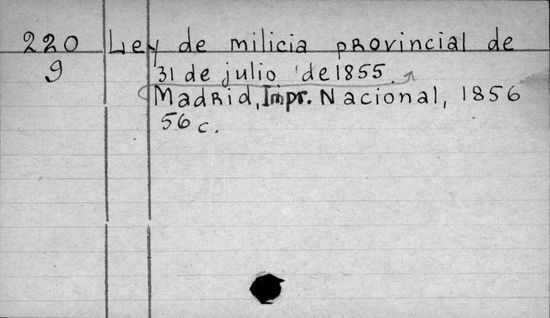 220 Ley de milicia provincial de
9 31 de julio de 1855.
Madrid, Impr. Nacional, 1856
56 c.